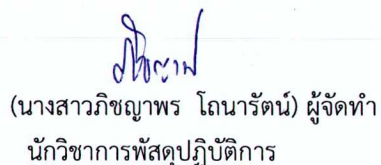 (นางสาวภิชญาพร โถนารัตน์) ผู้จัดทำ
นักวิชาการพัสดุปฏิบัติการ